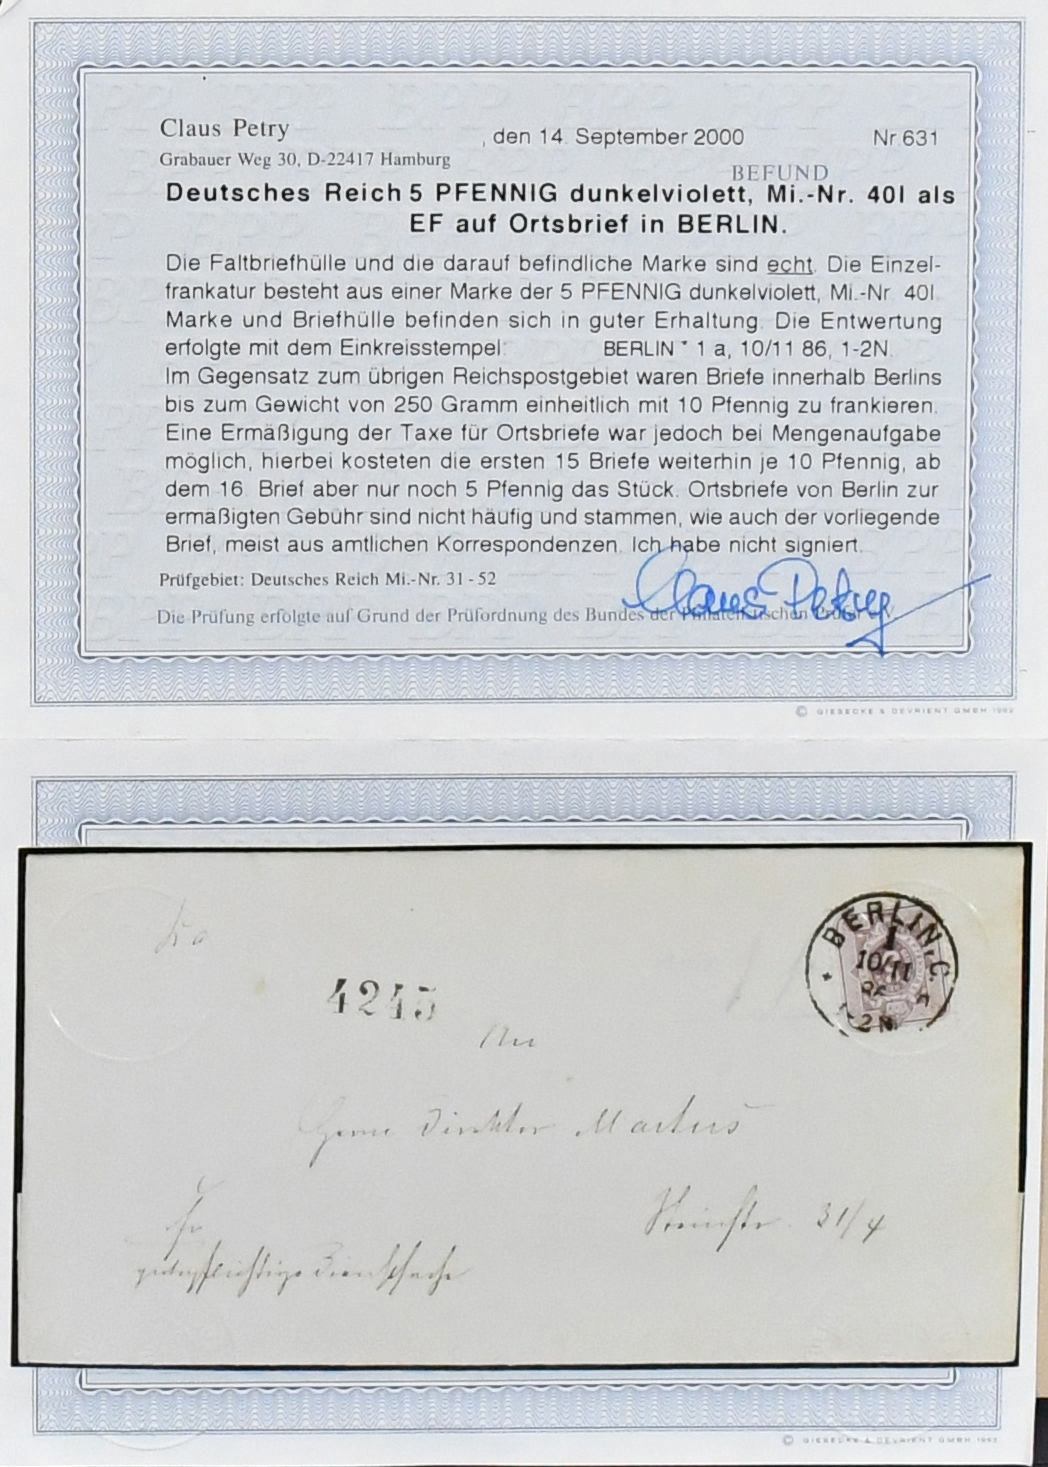 Claus Petry
Grabauer Weg 30, D-22417 Hamburg
, den 14. September 2000
Nr. 631
BEFUND
Deutsches Reich 5 PFENNIG dunkelviolett, Mi.-Nr. 40I als
EF auf Ortsbrief in BERLIN.
Die Faltbriefhülle und die darauf befindliche Marke sind echt. Die Einzel-
frankatur besteht aus einer Marke der 5 PFENNIG dunkelviolett, Mi.-Nr. 40I.
Marke und Briefhülle befinden sich in guter Erhaltung. Die Entwertung
erfolgte mit dem Einkreisstempel: BERLIN * 1 a, 10/11 86, 1-2N.
Im Gegensatz zum übrigen Reichspostgebiet waren Briefe innerhalb Berlins
bis zum Gewicht von 250 Gramm einheitlich mit 10 Pfennig zu frankieren.
Eine Ermäßigung der Taxe für Ortsbriefe war jedoch bei Mengenaufgabe
möglich, hierbei kosteten die ersten 15 Briefe weiterhin je 10 Pfennig, ab
dem 16. Brief aber nur noch 5 Pfennig das Stück. Ortsbriefe von Berlin zur
ermäßigten Gebühr sind nicht häufig und stammen, wie auch der vorliegende
Brief, meist aus amtlichen Korrespondenzen. Ich habe nicht signiert.
Prüfgebiet: Deutsches Reich Mi.-Nr. 31 - 52
Die Prüfung erfolgte auf Grund der Prüfordnung des Bundes der Philatelistischen Prüfer e.V.
Claus Petry
© GIESECKE & DEVRIENT GMBH 1992
BERLIN, C.
1
10/11
86 A
1-2N.
4245
An
Herrn Direktor Martius
Steinstr. 31/4
Fr.
portopflichtige Dienstsache
© GIESECKE & DEVRIENT GMBH 1992